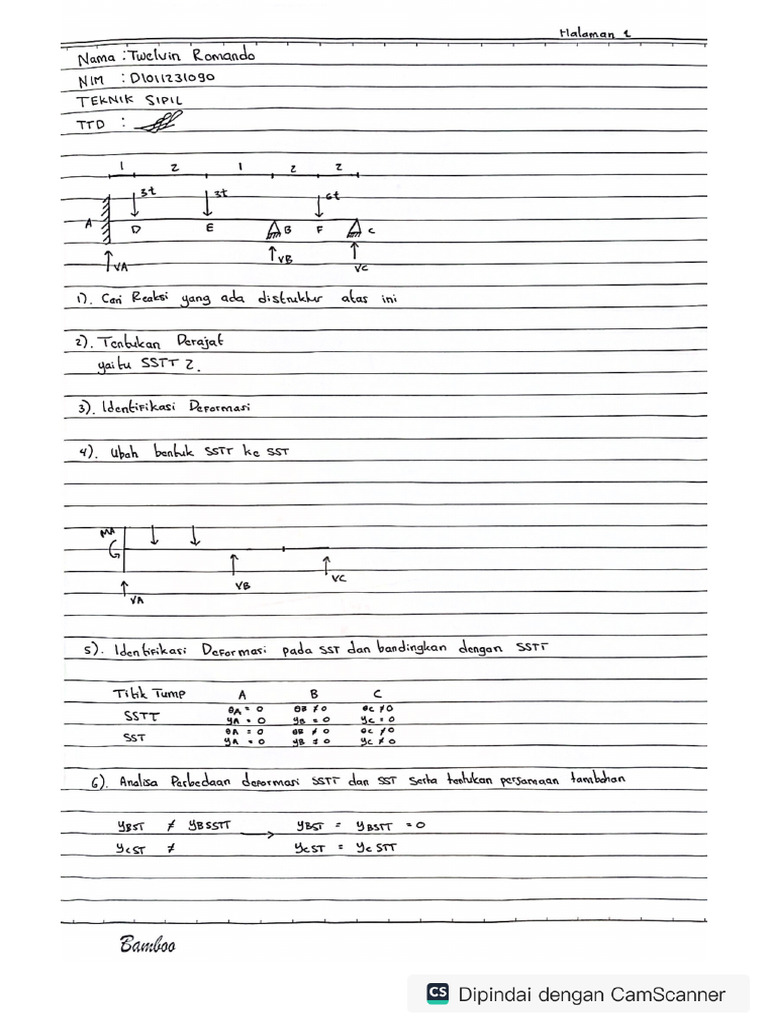 Halaman 1
Nama : Twelvin Romando
NIM : D1011231090
TEKNIK SIPIL
TTD :
1 2 1 2 2
3t 3t 6t
A D E B F C
VA VB VC
1). Cari Reaksi yang ada distruktur atas ini
2). Tentukan Derajat
yaitu SSTT 2.
3). Identifikasi Deformasi
4). Ubah bentuk SSTT ke SST
MA
VA VB VC
5). Identifikasi Deformasi pada SST dan bandingkan dengan SSTT
Titik Tump A B C
SSTT θA = 0 θB ≠ 0 θC ≠ 0
yA = 0 yB = 0 yC = 0
SST θA = 0 θB ≠ 0 θC ≠ 0
yA = 0 yB ≠ 0 yC ≠ 0
6). Analisa Perbedaan deformasi SSTT dan SST serta tentukan persamaan tambahan
yBST ≠ yBSSTT → yBST = yBSTT = 0
yCST ≠ yCST = yCSTT
Bamboo
CS Dipindai dengan CamScanner